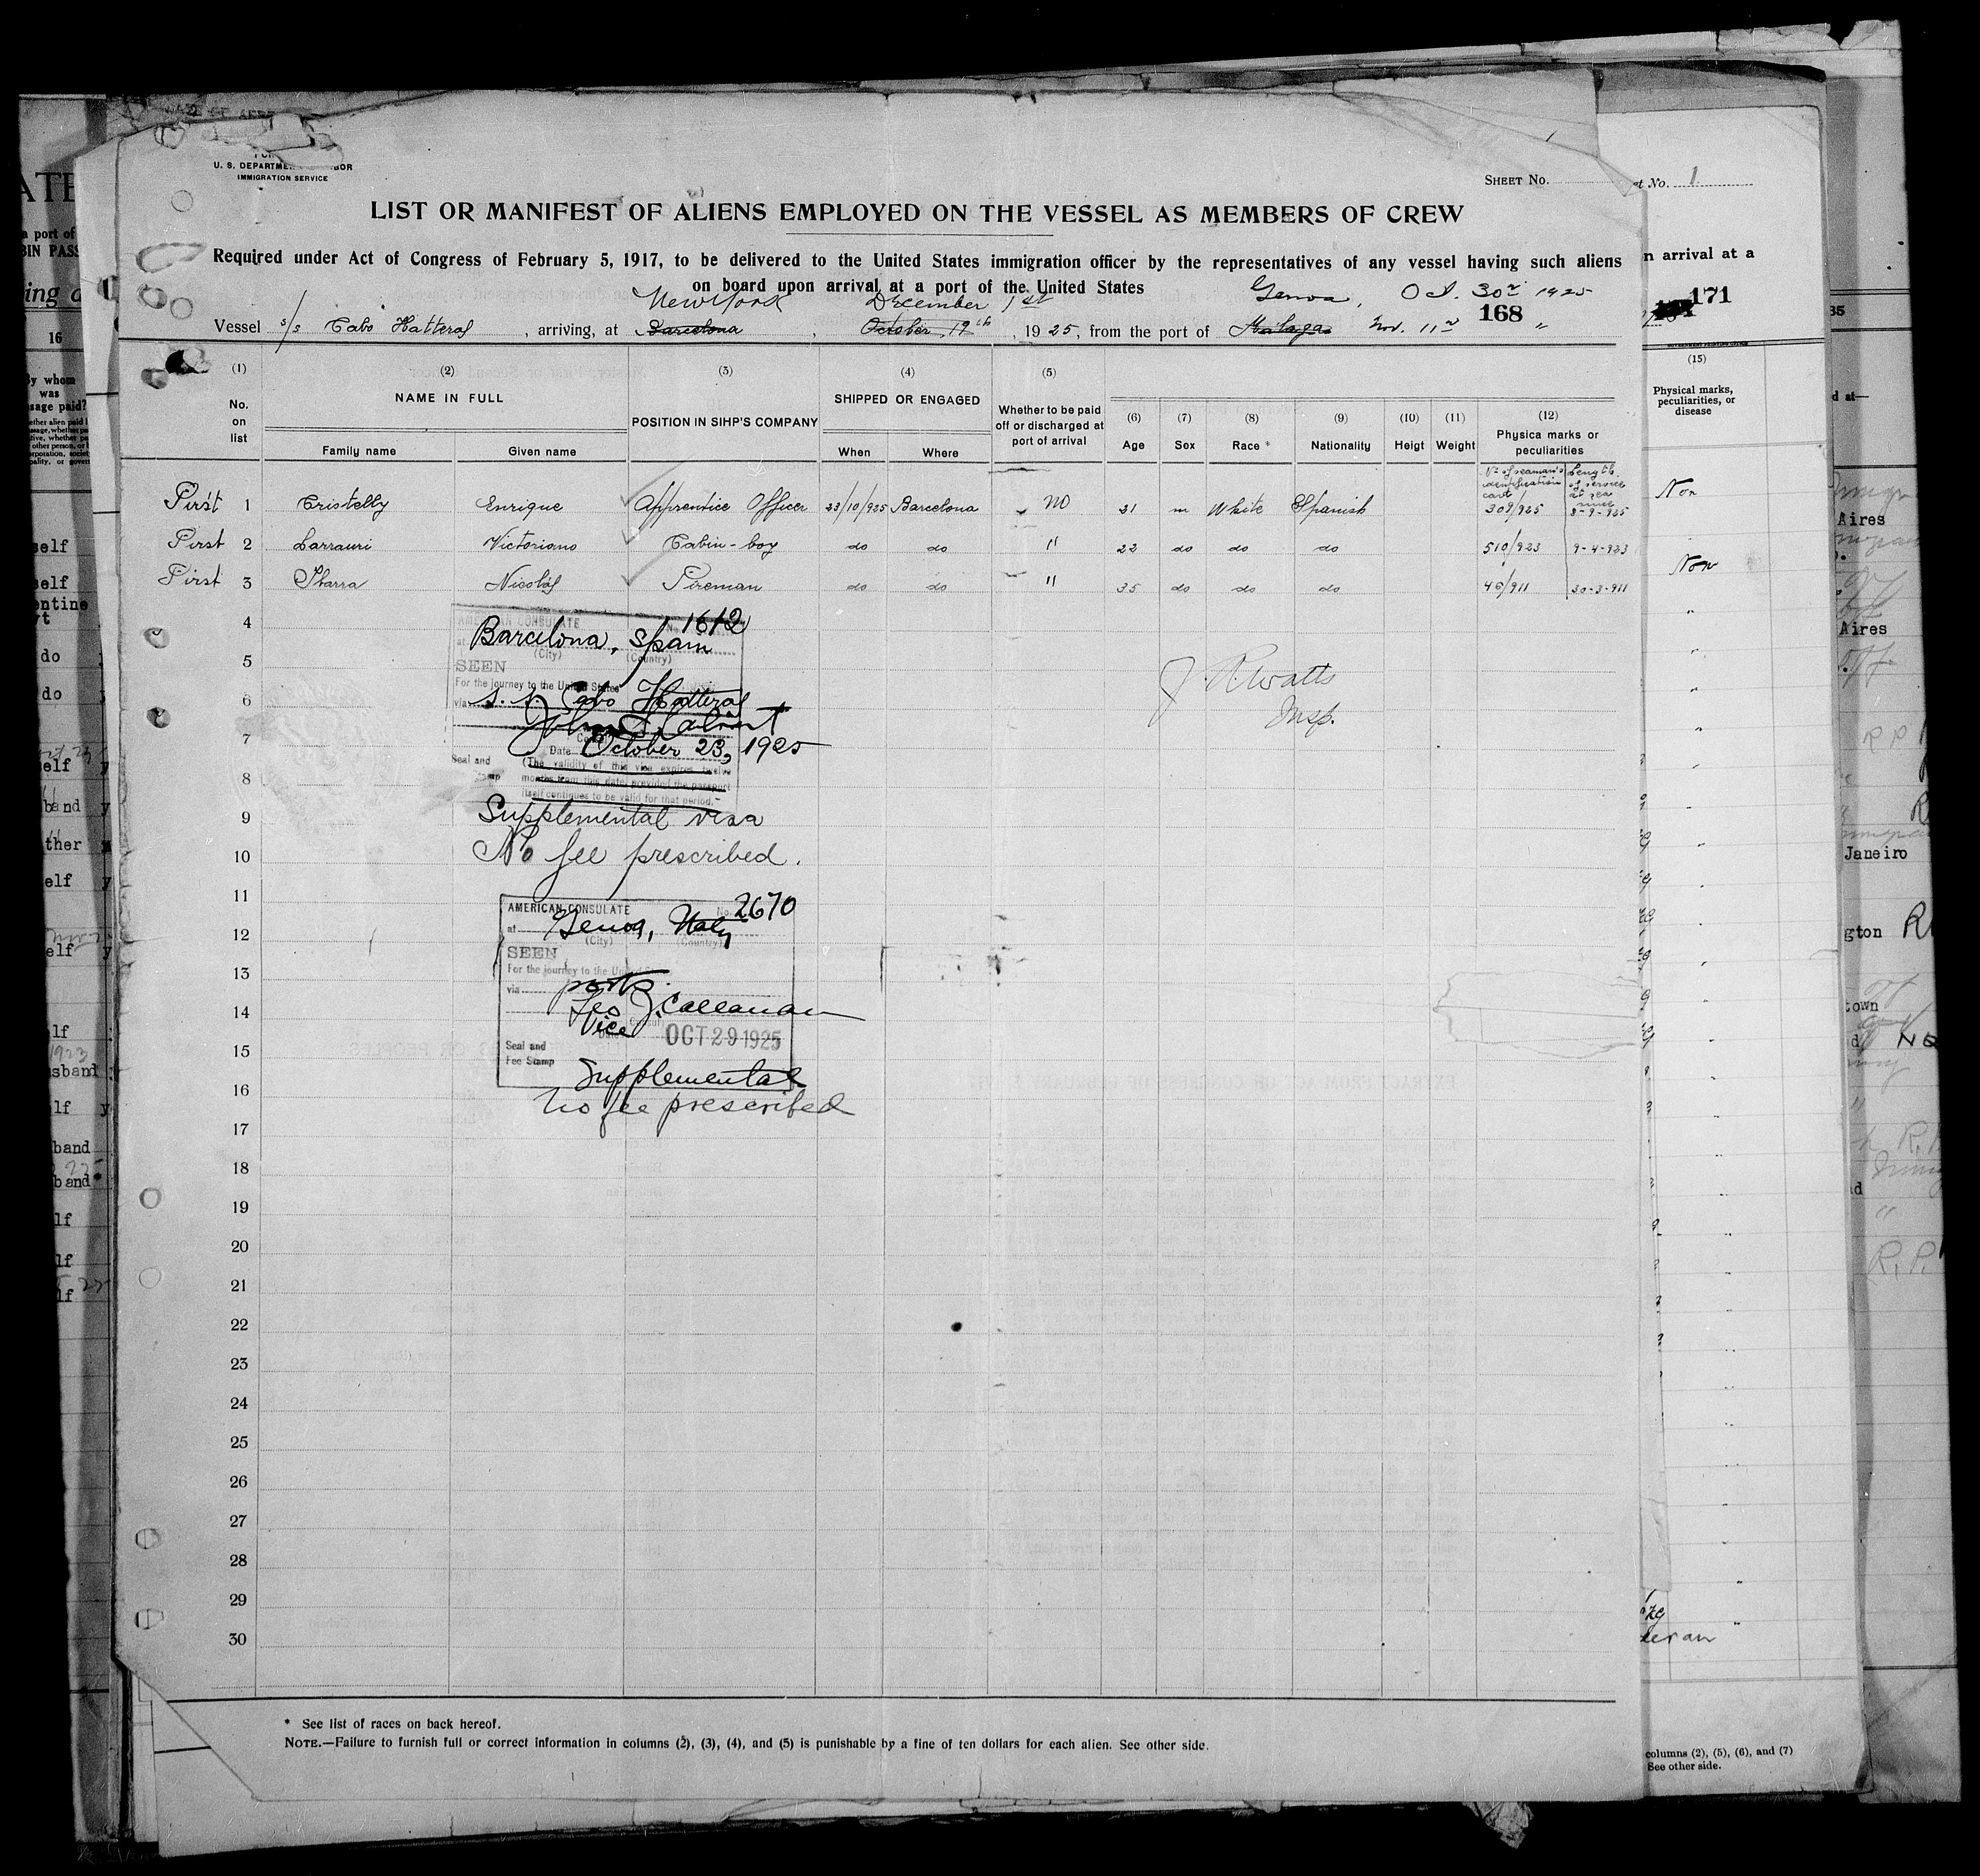 U. S. DEPARTME
BOR
IMMIGRATION SERVICE
SHEET No.
LIST OR MANIFEST OF ALIENS EMPLOYED ON THE VESSEL AS MEMBERS OF CREW
Required under Act of Congress of February 5, 1917, to be delivered to the United States immigration officer by the representatives of any vessel having such aliens
on board upon arrival at a port of the United States
New York December 1st Genoa, Oct. 30th 1925
Vessel s/s Cabo Hatteras, arriving, at Barcelona, October, 19th, 1925, from the port of Malaga Nov. 11th 168 "
(1) (2) (3) (4) (5)
No. on list
NAME IN FULL
Family name Given name
POSITION IN SIHP'S COMPANY
SHIPPED OR ENGAGED
When Where
Whether to be paid
off or discharged at
port of arrival
(6) (7) (8) (9) (10) (11) (12)
Age Sex Race * Nationality Heigt Weight Physica marks or
peculiarities
No of seaman's identification card
Length of service at sea since
First 1 Cristelly Enrique Apprentice Officer 23/10/925 Barcelona No 21 m White Spanish 309/925 8-9-925
First 2 Larrauri Victoriano Cabin-boy do do " 22 do do do 510/923 9-4-923
First 3 Ibarra Nicolás Fireman do do " 35 do do do 46/911 30-3-911
4
5
6
7
8
9
10
11
12
13
14
15
16
17
18
19
20
21
22
23
24
25
26
27
28
29
30
AMERICAN CONSULATE
No. 1612
at Barcelona, Spain
(City) (Country)
SEEN
For the journey to the United States
via s. s. Cabo Hatteras
Date October 23, 1925
Seal and
(The validity of this visa expires twelve
months from this date, provided the passport
itself continues to be valid for that period.
Supplemental visa
No fee prescribed.
J R Watts
Insp.
AMERICAN CONSULATE No. 2670
at Genoa, Italy
(City) (Country)
SEEN
For the journey to the Uni
via ports
Leo J. Callanan
Vice Consul
Date OCT 29 1925
Seal and
Fee Stamp
Supplemental
no fee prescribed
* See list of races on back hereof.
NOTE.—Failure to furnish full or correct information in columns (2), (3), (4), and (5) is punishable by a fine of ten dollars for each alien. See other side.
et No. 1
n arrival at a
171
(15)
Physical marks,
peculiarities, or
disease
Non
Non
columns (2), (5), (6), and (7)
See other side.
a port of
16
By whom
was
Aires
Aires
Janeiro
gton
town